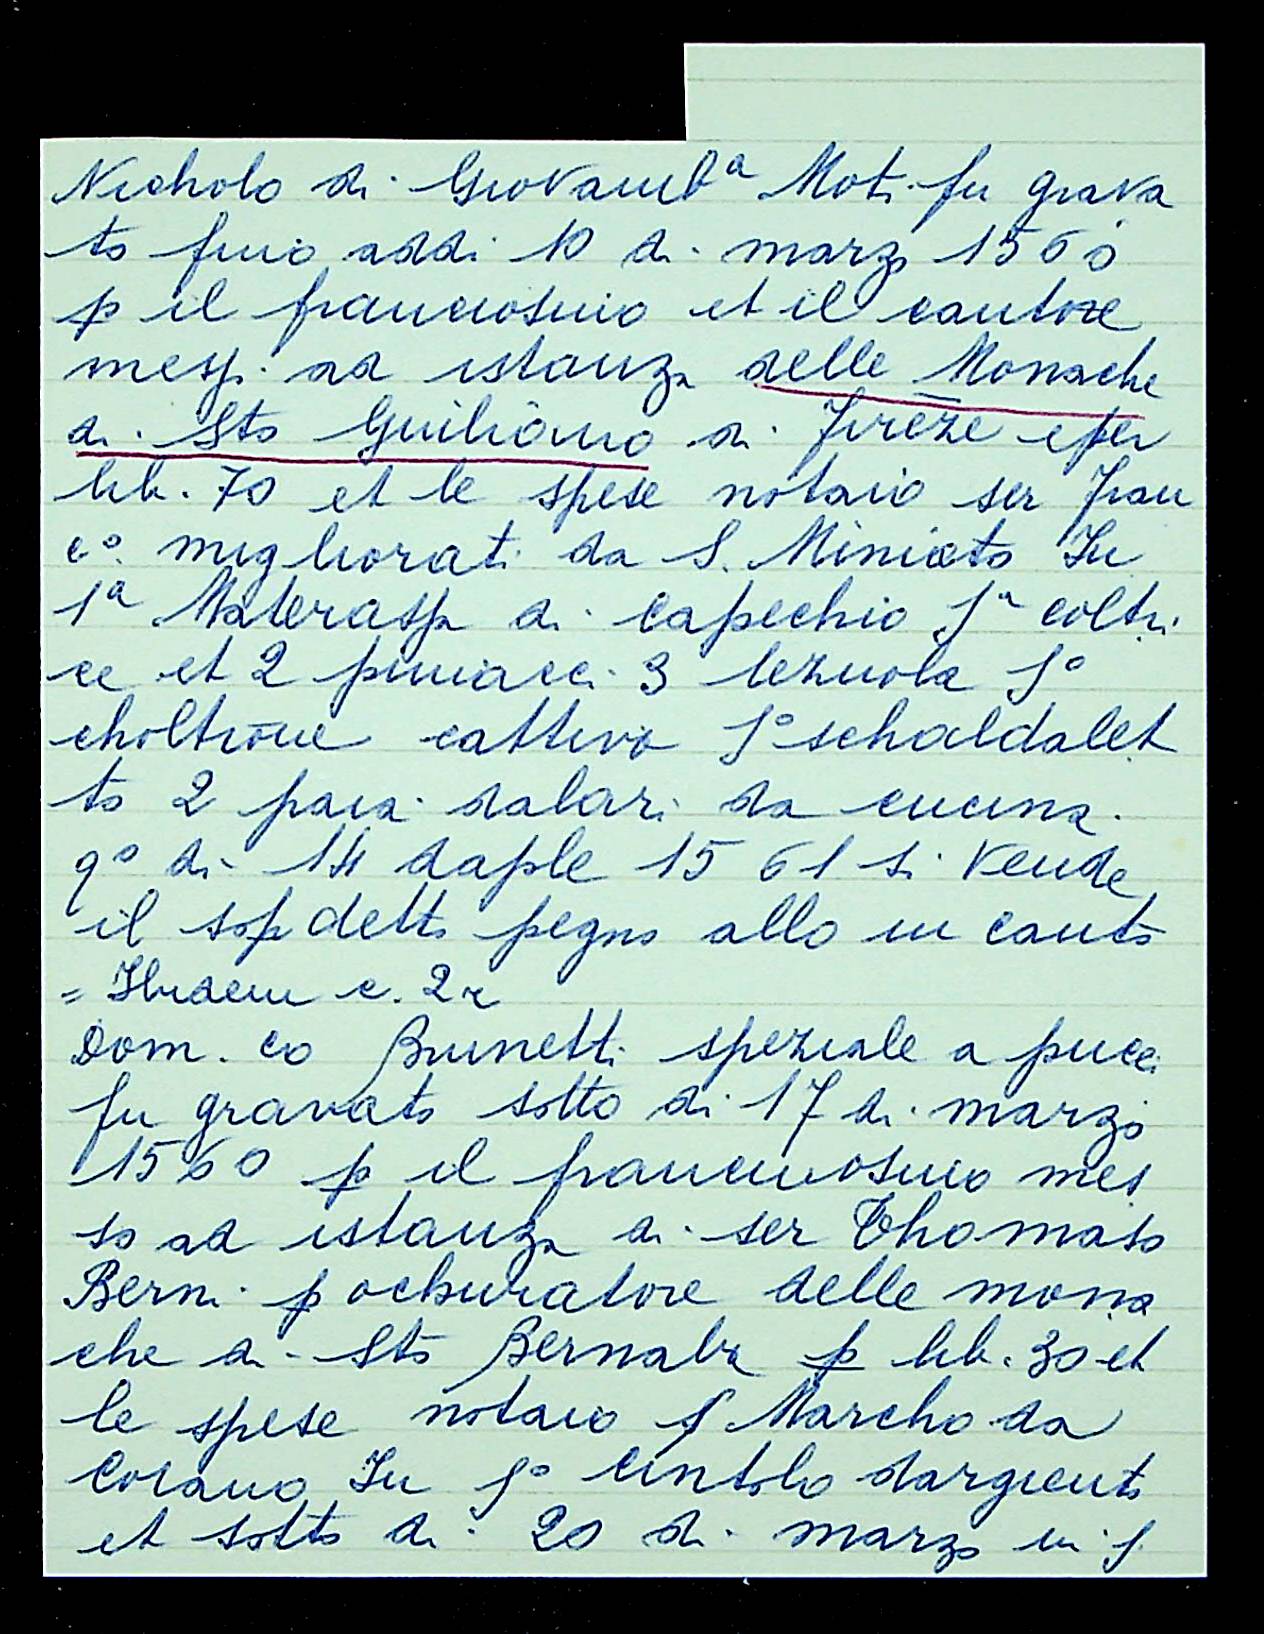 Nicholo di Giovamb<sup>a</sup> Moti fu grava
to fino addi 10 di marzo 1560
p il franciosino et il cantore
messi ad istanza delle Monache
di Sto Guiliano di Firēze e per
lib. 70 et le spese notaio ser Fran
c.º migliorati da S. Miniato In
1ª Materassa di capechio 1ª coltri
ce et 2 piniacci 3 lezuola 1º
choltrōne cattivo 1º schaldalet
to 2 paia dalari da cucina.
qº di 14 daple 1561 si vende
il sop detto pegno allo in canto
= Ibidem c. 2r
Dom.co Brunetti speziale a pucci
fu gravato sotto di 17 di marzo
1560 p il franciosino mes
so ad istanza di ser Thomaso
Berni p ochuratore delle mona
che di Sto Bernaba p lib. 30 et
le spese notaio s Marcho da
Corano In 1º cintolo dargiento
et sotto di 20 di marzo in 1